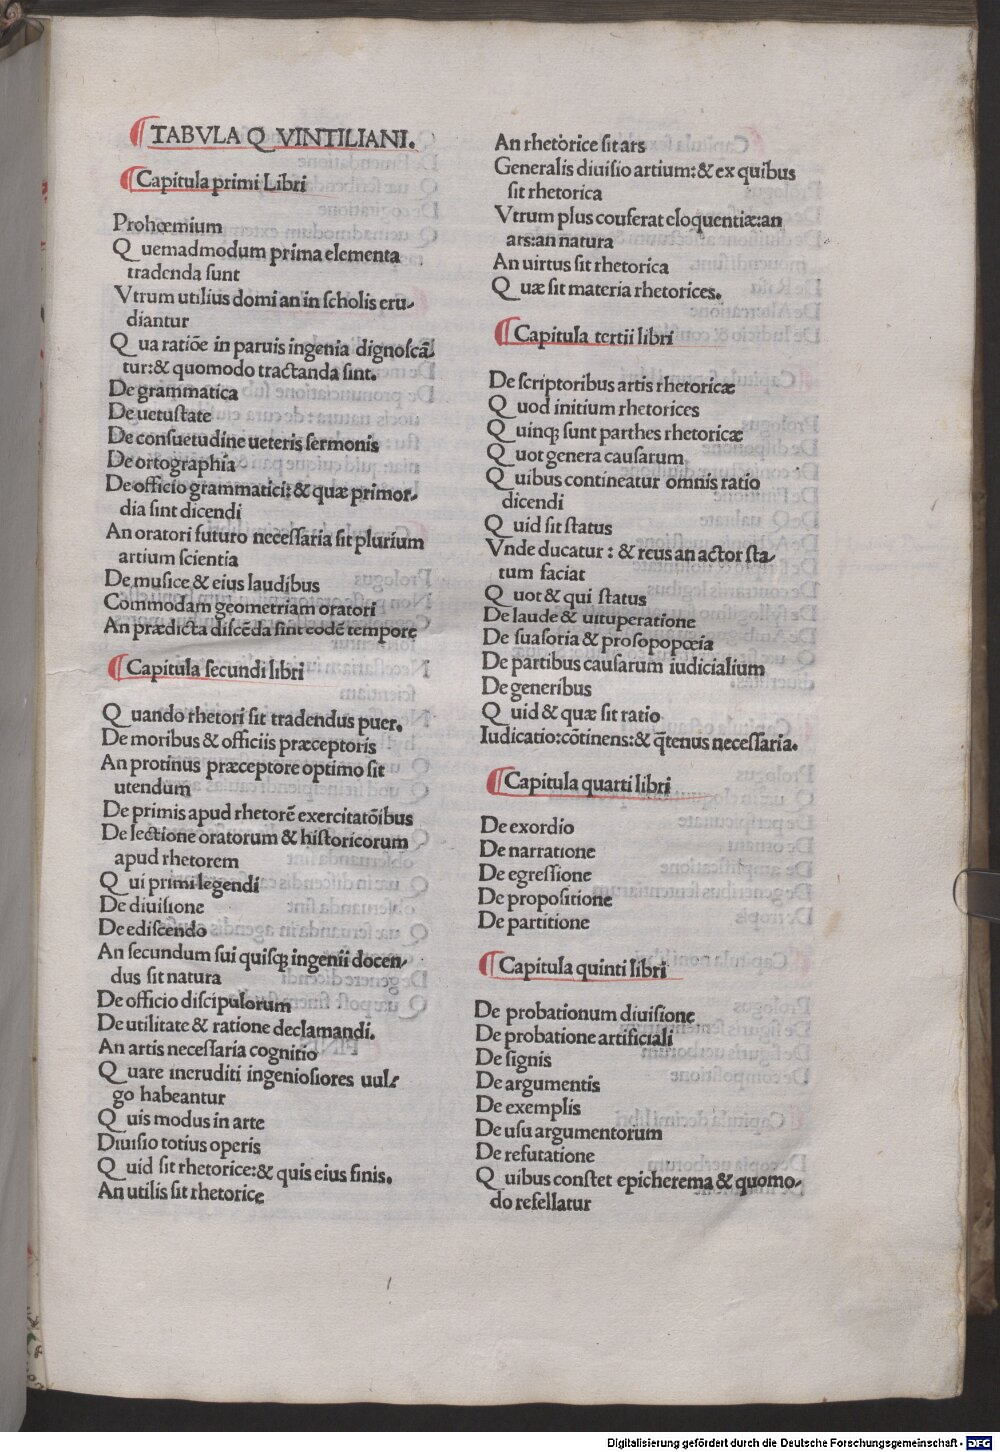 ¶TABVLA Q VINTILIANI.
¶Capitula primi Libri
Prohœmium
Q uemadmodum prima elementa
tradenda ſunt
Vtrum utilius domi an in ſcholis eru-
diantur
Q ua ratiōe in paruis ingenia dignoſcā-
tur:& quomodo tractanda ſint.
De grammatica
De uetuſtate
De conſuetudine ueteris ſermonis
De ortographia
De officio grammatici:& quæ primor-
dia ſint dicendi
An oratori futuro neceſſaria ſit plurium
artium ſcientia
De muſice & eius laudibus
Commodam geometriam oratori
An prædicta diſcēda ſint eodē tempore
¶Capitula ſecundi libri
Q uando rhetori ſit tradendus puer.
De moribus & officiis præceptoris
An protinus præceptore optimo ſit
utendum
De primis apud rhetorē exercitatōibus
De lectione oratorum & hiſtoricorum
apud rhetorem
Q ui primi legendi
De diuiſione
De ediſcendo
An ſecundum ſui quiſqȝ ingenii docen-
dus ſit natura
De officio diſcipulorum
De utilitate & ratione declamandi.
An artis neceſſaria cognitio
Q uare ineruditi ingenioſiores uul-
go habeantur
Q uis modus in arte
Diuiſio totius operis
Q uid ſit rhetorice:& quis eius finis.
An utilis ſit rhetorice
An rhetorice ſit ars
Generalis diuiſio artium:& ex quibus
ſit rhetorica
Vtrum plus couferat eloquentiæ:an
ars:an natura
An uirtus ſit rhetorica
Q uæ ſit materia rhetorices.
¶Capitula tertii libri
De ſcriptoribus artis rhetoricæ
Q uod initium rhetorices
Q uinqȝ ſunt parthes rhetoricæ
Q uot genera cauſarum
Q uibus contineatur omnis ratio
dicendi
Q uid ſit ſtatus
Vnde ducatur : & reus an actor ſta-
tum faciat
Q uot & qui ſtatus
De laude & uituperatione
De ſuaſoria & proſopopœia
De partibus cauſarum iudicialium
De generibus
Q uid & quæ ſit ratio
Iudicatio:cōtinens:& q̄tenus neceſſaria.
¶Capitula quarti libri
De exordio
De narratione
De egreſſione
De propoſitione
De partitione
¶Capitula quinti libri
De probationum diuiſione
De probatione artificiali
De ſignis
De argumentis
De exemplis
De uſu argumentorum
De refutatione
Q uibus conſtet epicherema & quomo-
do refellatur
Digitalisierung gefördert durch die Deutsche Forschungsgemeinschaft - DFG